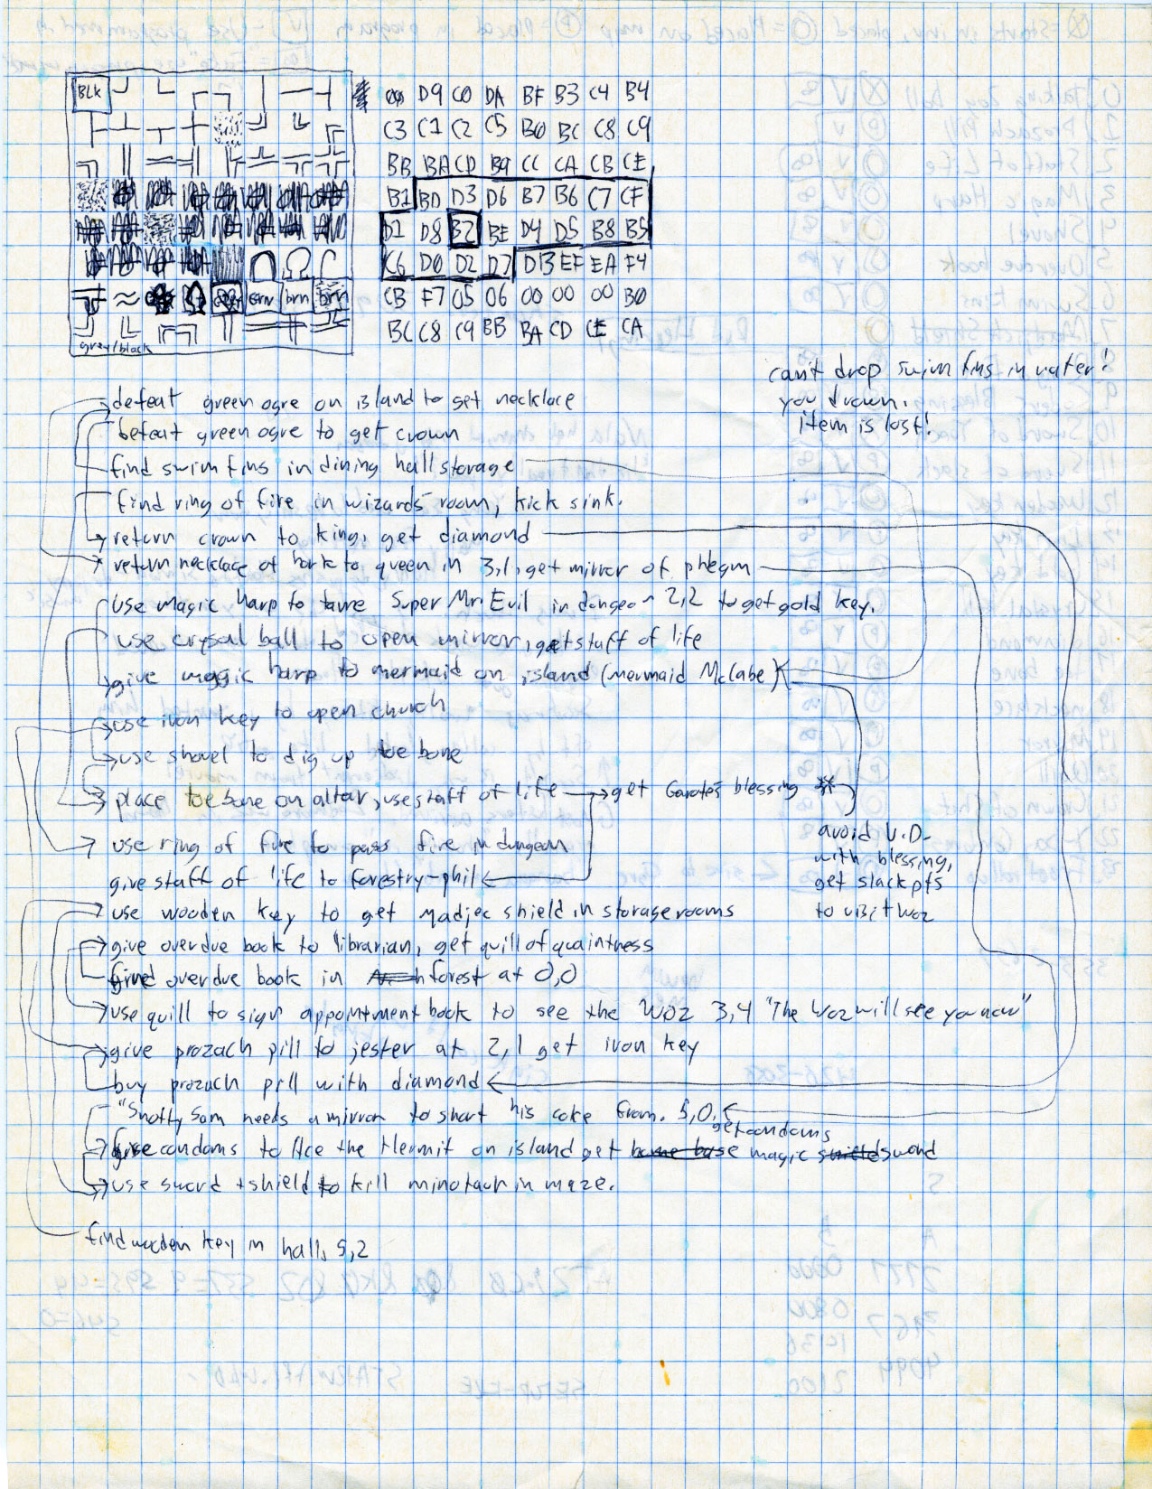 BLK
00 D9 C0 DA BF B3 C4 B4
C3 C1 C2 C5 B0 BC C8 C9
BB BA CD B9 CC CA CB CE
B1 BD D3 D6 B7 B6 C7 CF
D1 D8 B2 BE D4 D5 B8 B5
C6 D0 D2 D7 DB EF EA F4
CB F7 05 06 00 00 00 B0
BC C8 C9 BB BA CD CE CA
grn brn brn
gray/black
can't drop swim fins in water!
you drown.
item is lost!
defeat green ogre on island to get necklace
defeat green ogre to get crown
find swim fins in dining hall storage
find ring of fire in wizards room, kick sink.
return crown to king, get diamond
return necklace of bork to queen in 3,1, get mirror of phlegm
use magic harp to tame Super Mr. Evil in dungeon 2,2 to get gold key.
use crysal ball to open mirror, get staff of life
give magic harp to mermaid on island (mermaid McLabe)
use iron key to open church
use shovel to dig up toe bone
place toe bone on altar, use staff of life → get Garote's blessing *
avoid V.D.
with blessing,
get slack pts
to visit woz
use ring of fire to pass fire in dungeon
give staff of life to forestry-phil
use wooden key to get madjec shield in storage rooms
give overdue book to librarian, get quill of quaintness
find overdue book in forest at 0,0
use quill to sign appointment book to see the Woz 3,4 "The Woz will see you now"
give prozach pill to jester at 2,1 get iron key
buy prozach pill with diamond
"Snotty Sam needs a mirror to snort his coke from. 5,0.
get condoms
give condoms to Hce the Hermit on island get bone base magic shield sword
use sword + shield to kill minotaur in maze.
find wooden key in hall, 5,2